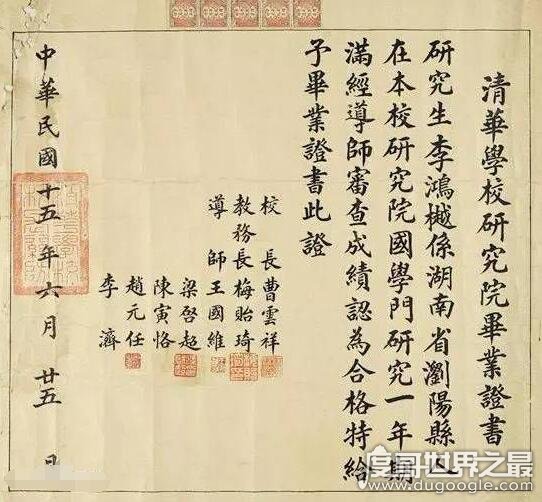 清華學校研究院畢業證書
研究生李鴻樾係湖南省瀏陽縣人
在本校研究院國學門研究一年期
滿經導師審查成績認為合格特給
予畢業證書此證
校長曹雲祥
教務長梅貽琦
導師王國維
梁啓超
陳寅恪
趙元任
李濟
中華民國十五年六月廿五日
度哥世界之最
dugoogle.com